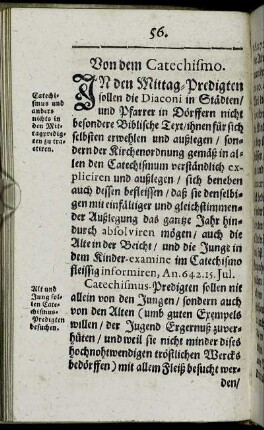 56.
Von dem Catechismo.
IN den Mittag-Predigten
sollen die Diaconi in Städten/
und Pfarrer in Dörffern nicht
besondere Biblische Text/ihnen für sich
selbsten erwehlen und außlegen/ son-
dern der Kirchenordnung gemäß in al-
len den Catechismum verständlich ex-
pliciren und außlegen / sich beneben
auch dessen befleissen / daß sie denselbi-
gen mit einfältiger und gleichstimmen-
der Außlegung das gantze Jahr hin-
durch absolviren mögen / auch die
Alte in der Beicht / und die Junge in
dem Kinder-examine im Catechismo
fleissig informiren, An. 642. 15. Jul.
Catechismus-Predigten sollen nit
allein von den Jungen / sondern auch
von den Alten (umb guten Exempels
willen / der Jugend Ergernuß zuver-
hüten / und weil sie nicht minder dises
hochnohtwendigen tröstlichen Wercks
bedörffen) mit allem Fleiß besucht wer-
den/
Catechi-
smus und
anders
nichts in
den Mit-
tagpredig-
ten zu tra-
ctiren.
Alt und
Jung sol-
len Cate-
chismus-
Predigten
besuchen.